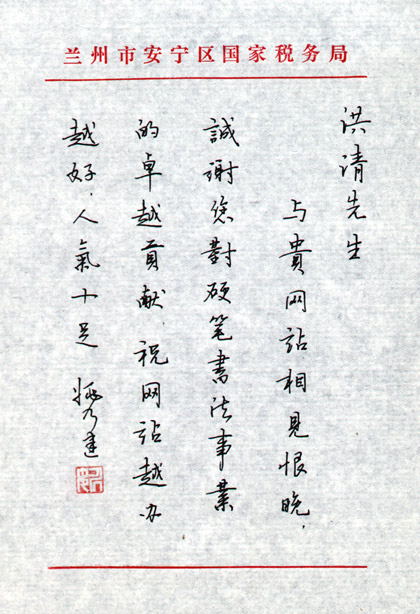 兰州市安宁区国家税务局
洪清先生
与貴网站相見恨晚，
誠谢您對硬笔書法事業
的卓越貢献，祝网站越办
越好，人氣十足